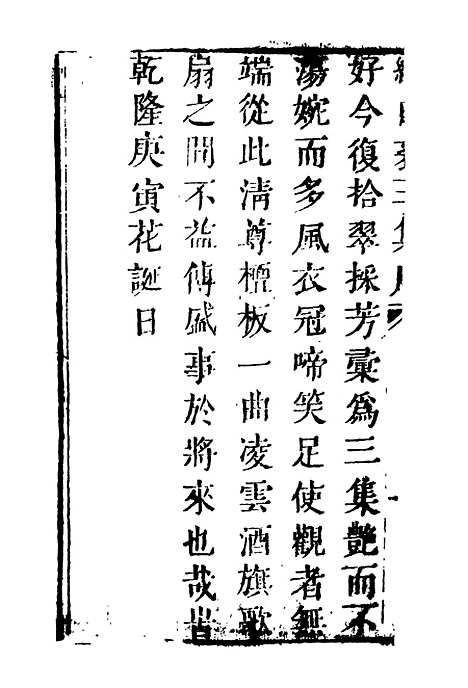 綴白裘三集序
好今復拾翠採芳彙爲三集艶而不
蕩婉而多風衣冠啼笑足使觀者無
端從此清尊檀板一曲凌雲酒旗歌
扇之間不益傳盛事於將來也哉時
乾隆庚寅花誕日